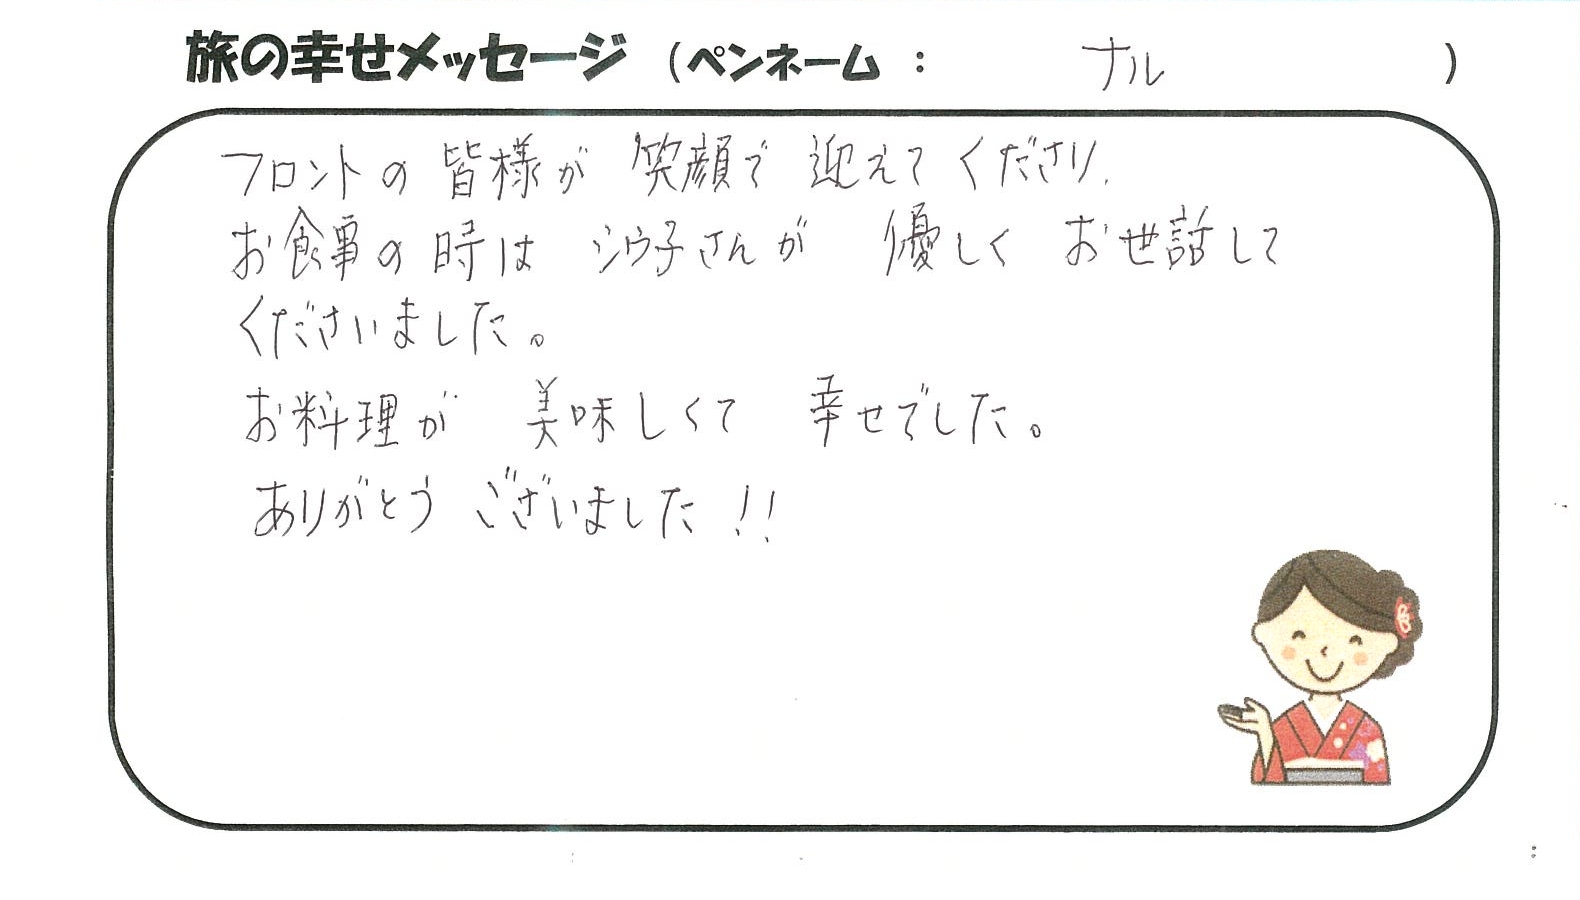 旅の幸せメッセージ (ペンネーム : ナル )
フロントの 皆様が 笑顔で 迎えてくださり、
お食事の 時は シウ子さんが 優しく お世話して
くださいました。
お料理が 美味しくて 幸せでした。
ありがとう ございました!!